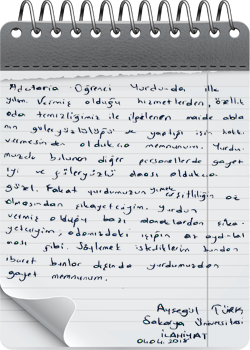 Adataria Öğrenci Yurdunda ilk
yılım. Vermiş olduğu hizmetlerden, özellik
oda temizliğimiz ile ilgilenen naide abla
nın güleryüzlülüğü ve yaptığı işin hakkı
vermesinden oldukça memnunum. Yurdu-
muzda bulunan diğer personellerde gayet
iyi ve güleryüzlü olması oldukça
güzel. Fakat yurdumuzun yemek çeşitliliğin az
olmasından şikayetçiyim. Yurdun
vermiş olduğu bazı olanaklardan şika-
yetçiyim; odamızdaki ışığın az aydınl-
ması gibi. Söylemek istediklerim bundan
ibaret bunlar dışında yurdumuzdan
gayet memnunum.
Ayşegül TÜRK
Sakarya Üniversitesi
İLAHİYAT
04.04.2018